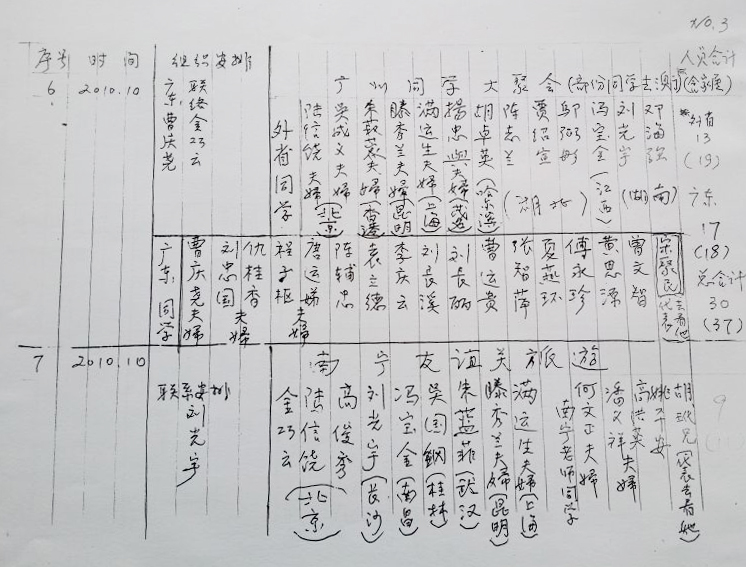 NO. 3
序号 时间 组织安排 人员合计
6 2010.10 广州同学大聚会(部份同学去澳门) (含家属)
联络金巧云
广东曹庆尧
外省同学
陆信饶夫妇
吴成义夫妇(北京)
朱毅蓀夫妇(香港)
滕秀兰夫妇(昆明)
满运生夫妇(上海)
杨忠與夫妇(茂名)
胡卓英(哈尔滨)
陈志兰
贾绍宣
邬弼彤
(湖北)
冯宝金(江西)
刘光宇
邓海强
(湖南)
外省
13
(19)
广东
17
(18)
总合计
30
(37)
广东同学
曹庆尧夫妇
刘忠国
仇桂香夫妇
程子枢
唐运娣夫妇
陈辅忠
袁立德
李庆云
刘长溪
刘长丽
曹运贵
张智萍
夏燕环
傅永珍
黄思源
曾文智
宋聚民
代表去看他
7 2010.10 南宁友谊关旅遊
联系安排
刘光宇
金巧云
陆信饶
高俊秀
(北京)
刘光宇(长沙)
冯宝金(南昌)
吴国钢(桂林)
朱蓝菲(武汉)
滕秀兰夫妇(昆明)
满运生夫妇(上海)
南宁老师同学
何文正夫妇
潘义祥
高洪英夫妇
姚平安
胡琼兄(代表去看她)
9